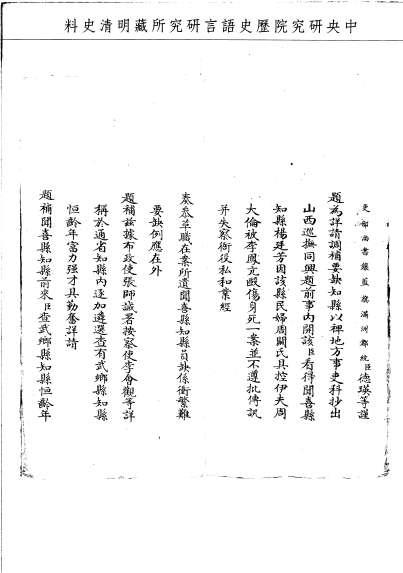 中央研究院歷史語言研究所藏明清史料
吏部尚書鑲藍旗滿洲都統臣德瑛等謹
題為詳請調補要缺知縣以裨地方事吏科抄出
山西巡撫同興題前事內開該臣看得聞喜縣
知縣楊廷芳因該縣民婦周關氏具控伊夫周
大倫被李鳳克毆傷身死一案並不遵批傳訊
并失察衙役私和業經
奏叅革職在案所遺聞喜縣知縣員缺係衝繁難
要缺例應在外
題補茲據布政使張師誠署按察使李會觀等詳
稱於通省知縣內逐加遴選查有武鄉縣知縣
恒齡年富力强才具勤奮詳請
題補聞喜縣知縣前來臣查武鄉縣知縣恒齡年